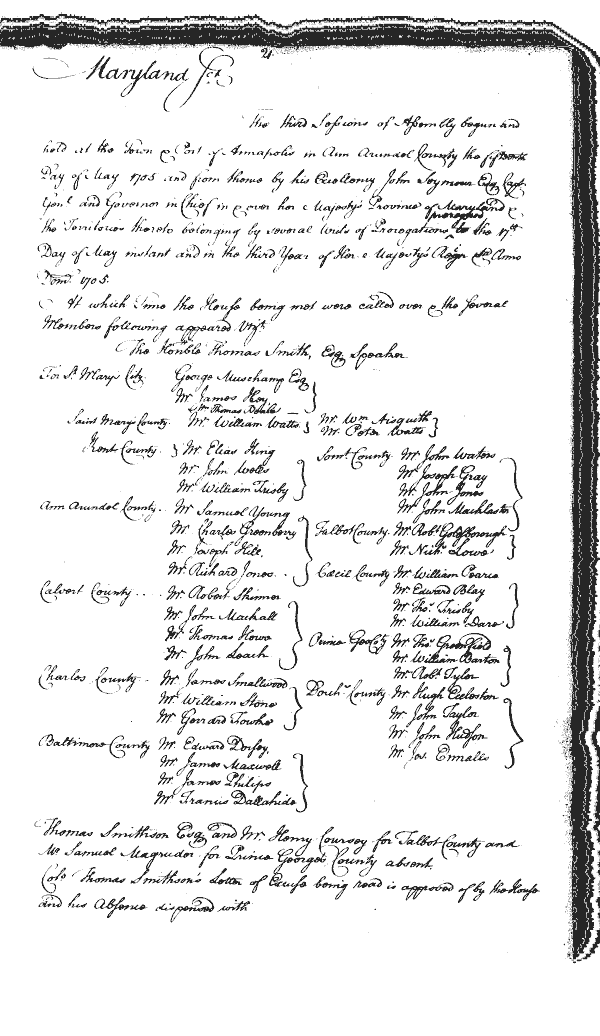 21
Maryland Sct
The third Sessions of Assembly begun and
held at the Town & Port of Annapolis in Ann Arundel County the fifteenth
Day of May 1705 and from thence by his Excellency John Seymour Esq Capt
Genl and Governor in Chief in & over her Majestys Province of Maryland &
prorogued
the Territories thereto belonging by several Writs of Prorogations to the
Day of May instant and in the third Year of Her Majesty's Reign &c Anno
Domi 1705.
At which Time the House being met were called over & the several
Members following appeared Vizt
The Honble Thomas Smith, Esq Speaker
For St Marys City George Muschamp Esq
Mr James Hay
Thomas Beale
Saint Marys County. Mr William Watts Mr Wm Aisquith
Mr Peter Watts
Kent County Mr Elias King Somt County Mr John Waters
Mr John Wells Mr Joseph Gray
Mr William Frisby Mr John Jones
Ann Arundel County.. Mr Samuel Young Mr John Macklester
Mr Charles Greenberry Talbot County. Mr Robt Goldsborough
Mr Joseph Hill. Mr Nichs Lowe
Mr Richard Jones... Cæcil County Mr William Pearce
Calvert County.... Mr Robert Skinner Mr Edward Blay
Mr John Mackall Mr Thos Frisby
Mr Thomas Howe Mr William Dare
Mr John Leach Prince Geo Cty Mr Thos Greenfield
Charles County.. Mr James Smallwood Mr William Barton
Mr William Stone Mr Robt Tyler
Mr Gerrard Fowke Dorchr County Mr Hugh Eccleston
Baltimore County Mr Edward Dorsey, Mr John Taylor
Mr James Maxwell Mr John Hudson
Mr James Philips Mr Jos. Ennalls
Mr Francis Dallahide
Thomas Smithson Esq and Mr Henry Coursey for Talbot County and
Mr Samuel Magruder for Prince Georges County absent.
Colo Thomas Smithson's Letter of Excuse being read is approved of by the House
and his Absence dispensed with